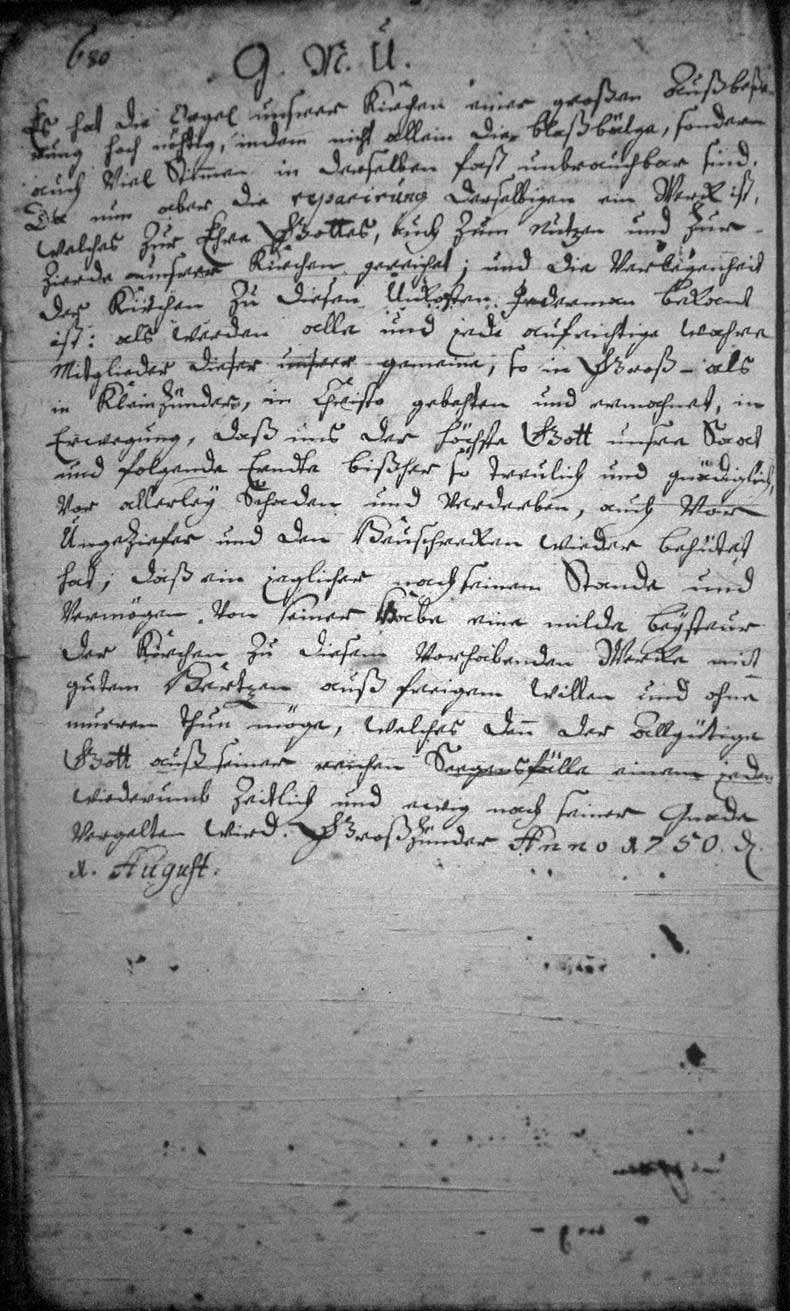 680
G. M. U.
Es hat die Orgel unserer Kirchen einer großen Außbeße-
rung hoch nöthig, indem nicht allein die blaßbälge, sondern
auch Viel Stimmen in derselben fast unbrauchbar sind.
Da nun aber die reparirung derselbigen ein Werck ist,
welches zur Ehre Gottes, auch zum Nutzen und zur
Zierde unserer Kirchen gereichet; und die Verlegenheit
der Kirchen zu diesen Unkosten Jederman bekant
ist: als werden alle und jede aufrichtige wahre
Mitglieder dieser unserer gemeine, so in Groß- als
in Kleinzünder, in Christo gebehten und ermahnet, in
Erwegung, daß uns der höchste Gott unsre Saat
und folgende Erndte bißher so treulich und gnädiglich,
Vor allerley Schaden und Verderben, auch Vor
Ungeziefer und den Heuschrecken wieder behütet
hat; daß ein jeglicher nach seinem Stande und
Vermögen Von seiner Habe eine milde beysteur
der Kirchen zu diesem Vorhabenden Wercke mit
gutem Hertzen auß freyem willen und ohne
murren thun möge, welches den der Allgütige
Gott auß seiner reichen Seegensfülle einem jeden
wiederumb zeitlich und ewig nach seiner Gnade
Vergelten wird. Großzünder Anno 1750. d.
1. August.